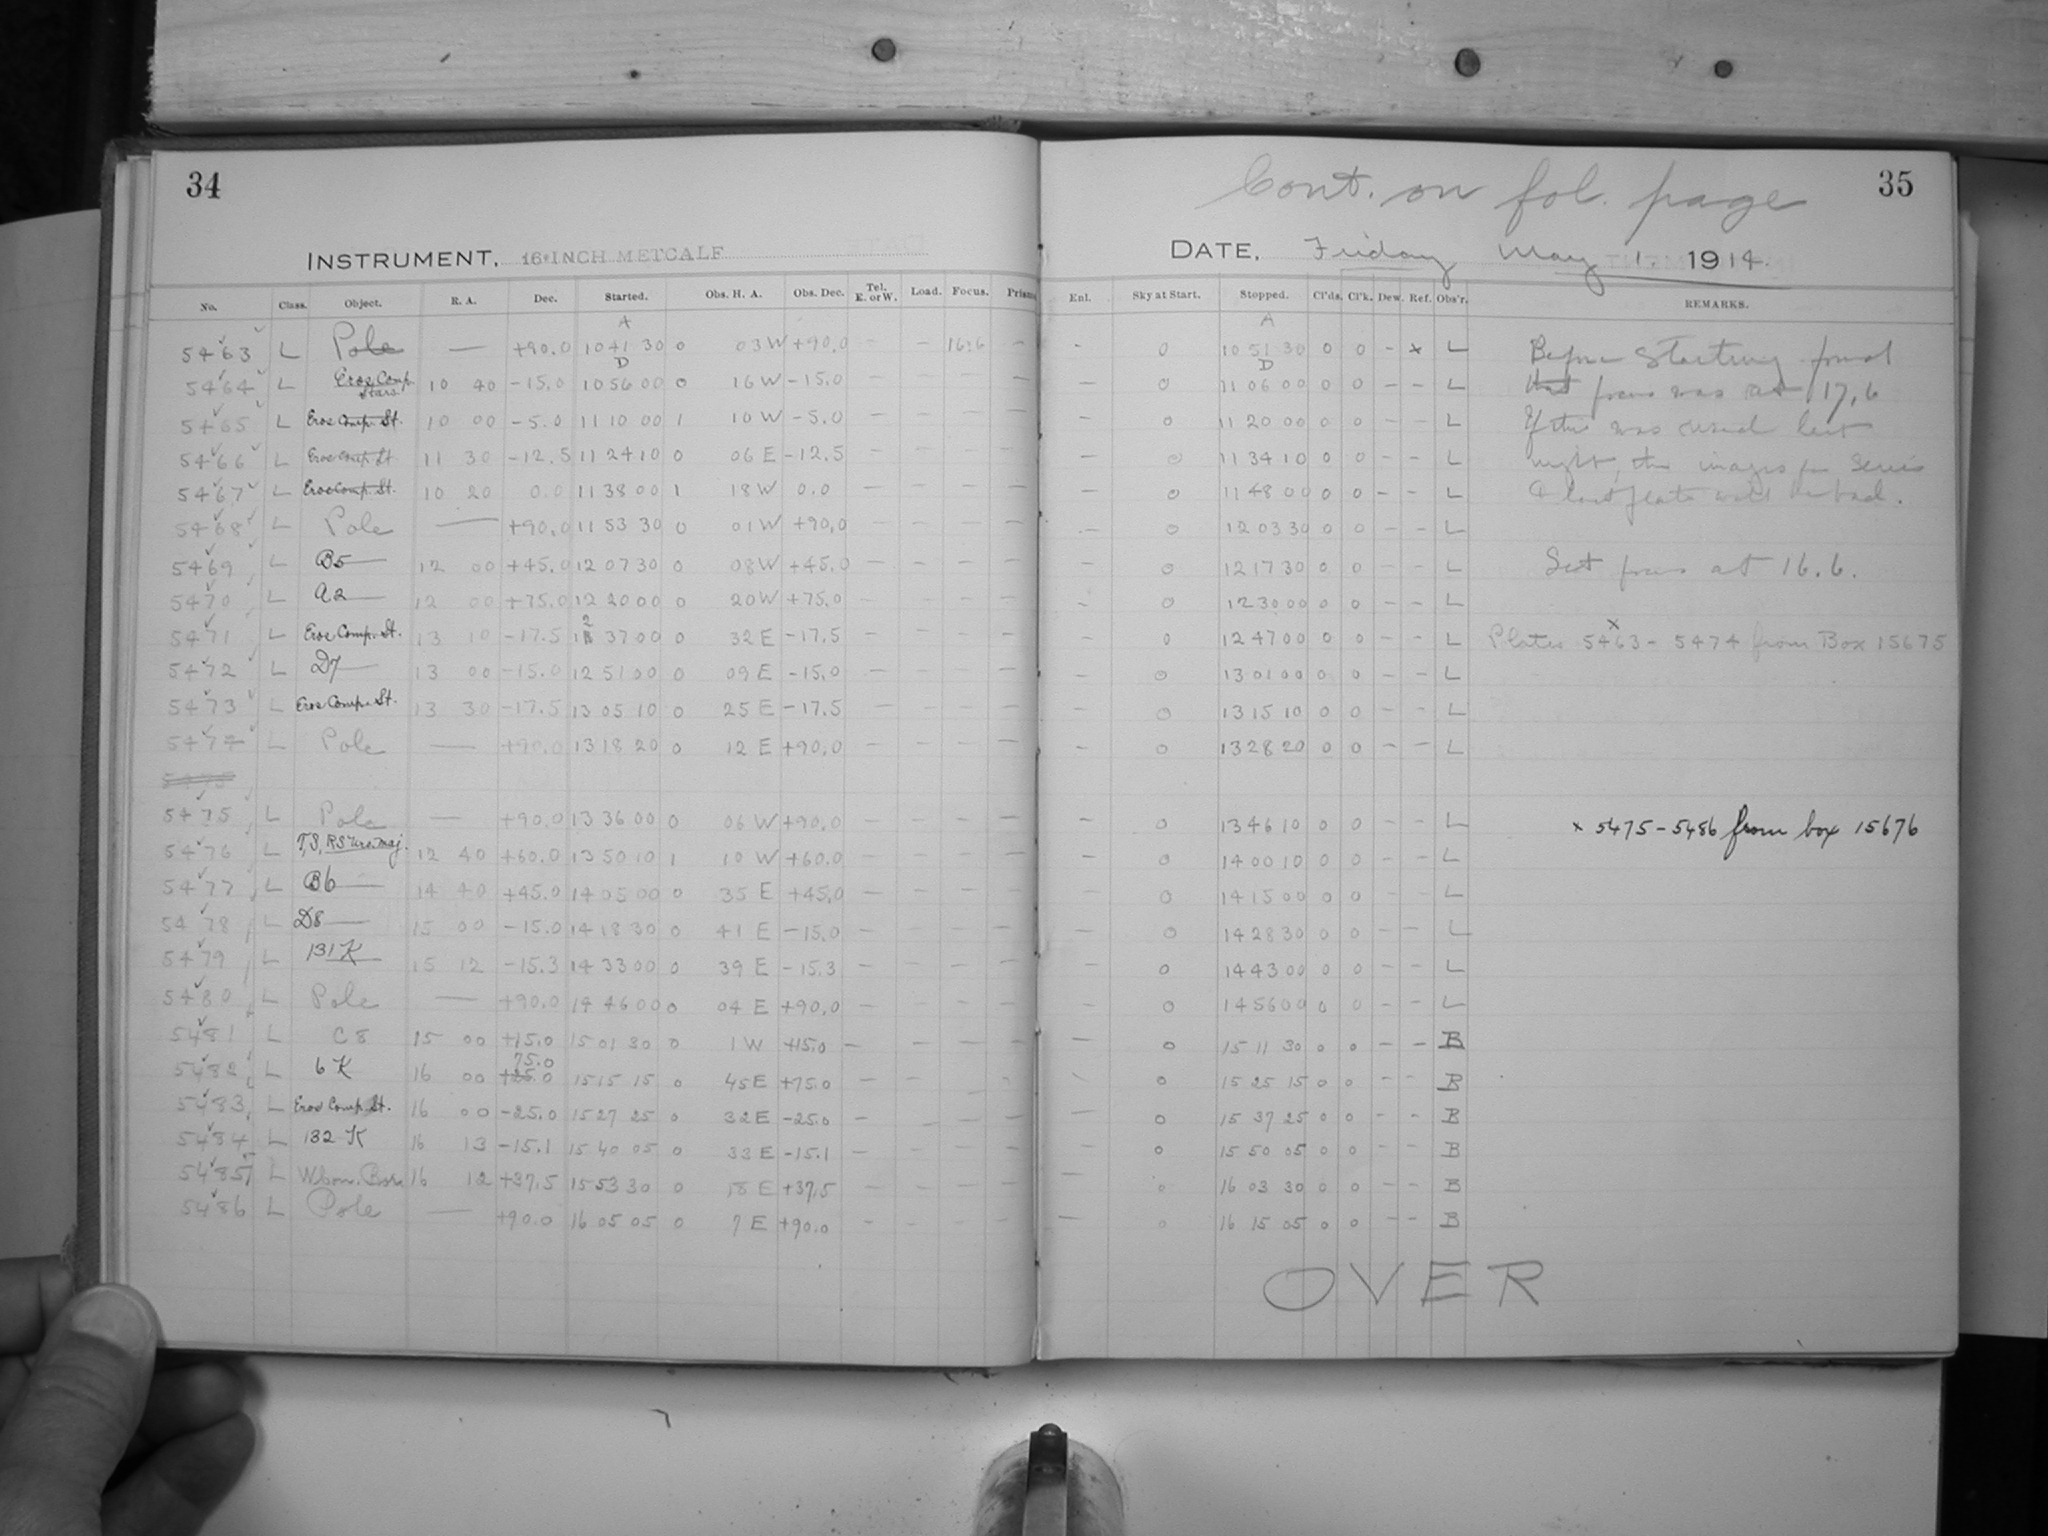 34
INSTRUMENT, 16-INCH METCALF
No. Class. Object. R. A. Dec. Started. Obs. H. A. Obs. Dec. Tel. E. or W. Load. Focus. Prism
5463 L Pole — +90.0 A 10 41 30 0 03 W +90.0 - - 16.6 -
5464 L Eros Comp. Stars 10 40 -15.0 D 10 56 00 0 16 W -15.0 - - - -
5465 L Eros Comp. St. 10 00 -5.0 11 10 00 1 10 W -5.0 - - - -
5466 L Eros Comp. St. 11 30 -12.5 11 24 10 0 06 E -12.5 - - - -
5467 L Eros Comp. St. 10 20 0.0 11 38 00 1 18 W 0.0 - - - -
5468 L Pole — +90.0 11 53 30 0 01 W +90.0 - - - -
5469 L B5 12 00 +45.0 12 07 30 0 08 W +45.0 - - - -
5470 L A2 12 00 +75.0 12 20 00 0 20 W +75.0 - - - -
5471 L Eros Comp. St. 13 10 -17.5 12 37 00 0 32 E -17.5 - - - -
5472 L D7 13 00 -15.0 12 51 00 0 09 E -15.0 - - - -
5473 L Eros Comp. St. 13 30 -17.5 13 05 10 0 25 E -17.5 - - - -
5474 L Pole — +90.0 13 18 20 0 12 E +90.0 - - - -
5475 L Pole — +90.0 13 36 00 0 06 W +90.0 - - - -
5476 L T, S, RS Urs. Maj. 12 40 +60.0 13 50 10 1 10 W +60.0 - - - -
5477 L B6 14 40 +45.0 14 05 00 0 35 E +45.0 - - - -
5478 L D8 15 00 -15.0 14 18 30 0 41 E -15.0 - - - -
5479 L 131 K 15 12 -15.3 14 33 00 0 39 E -15.3 - - - -
5480 L Pole — +90.0 14 46 00 0 04 E +90.0 - - - -
5481 L C8 15 00 +15.0 15 01 30 0 1 W +15.0 - - - -
5482 L 6 K 16 00 75.0 +25.0 15 15 15 0 45 E +75.0 - - - -
5483 L Eros Comp. St. 16 00 -25.0 15 27 25 0 32 E -25.0 - - - -
5484 L 132 K 16 13 -15.1 15 40 05 0 33 E -15.1 - - - -
5485 L 16 12 +37.5 15 53 30 0 18 E +37.5 - - - -
5486 L Pole — +90.0 16 05 05 0 7 E +90.0 - - - -
35
Cont. on fol. page
DATE, Friday May 1, 1914.
Enl. Sky at Start. Stopped. Cl'ds. Cl'k. Dew. Ref. Obs'r. REMARKS.
- 0 A 10 51 30 0 0 - x L Before starting found
- 0 D 11 06 00 0 0 - - L that focus was at 17.6
- 0 11 20 00 0 0 - - L If this was used last
- 0 11 34 10 0 0 - - L night, the images for Series
- 0 11 48 00 0 0 - - L & last plate will be bad.
- 0 12 03 30 0 0 - - L
- 0 12 17 30 0 0 - - L Set focus at 16.6.
- 0 12 30 00 0 0 - - L
- 0 12 47 00 0 0 - - L Plates 5463 - 5474 from Box 15675
- 0 13 01 00 0 0 - - L
- 0 13 15 10 0 0 - - L
- 0 13 28 20 0 0 - - L
- 0 13 46 10 0 0 - - L x 5475 - 5486 from box 15676
- 0 14 00 10 0 0 - - L
- 0 14 15 00 0 0 - - L
- 0 14 28 30 0 0 - - L
- 0 14 43 00 0 0 - - L
- 0 14 56 00 0 0 - - L
- 0 15 11 30 0 0 - - B
- 0 15 25 15 0 0 - - B
- 0 15 37 25 0 0 - - B
- 0 15 50 05 0 0 - - B
- 0 16 03 30 0 0 - - B
- 0 16 15 05 0 0 - - B
OVER